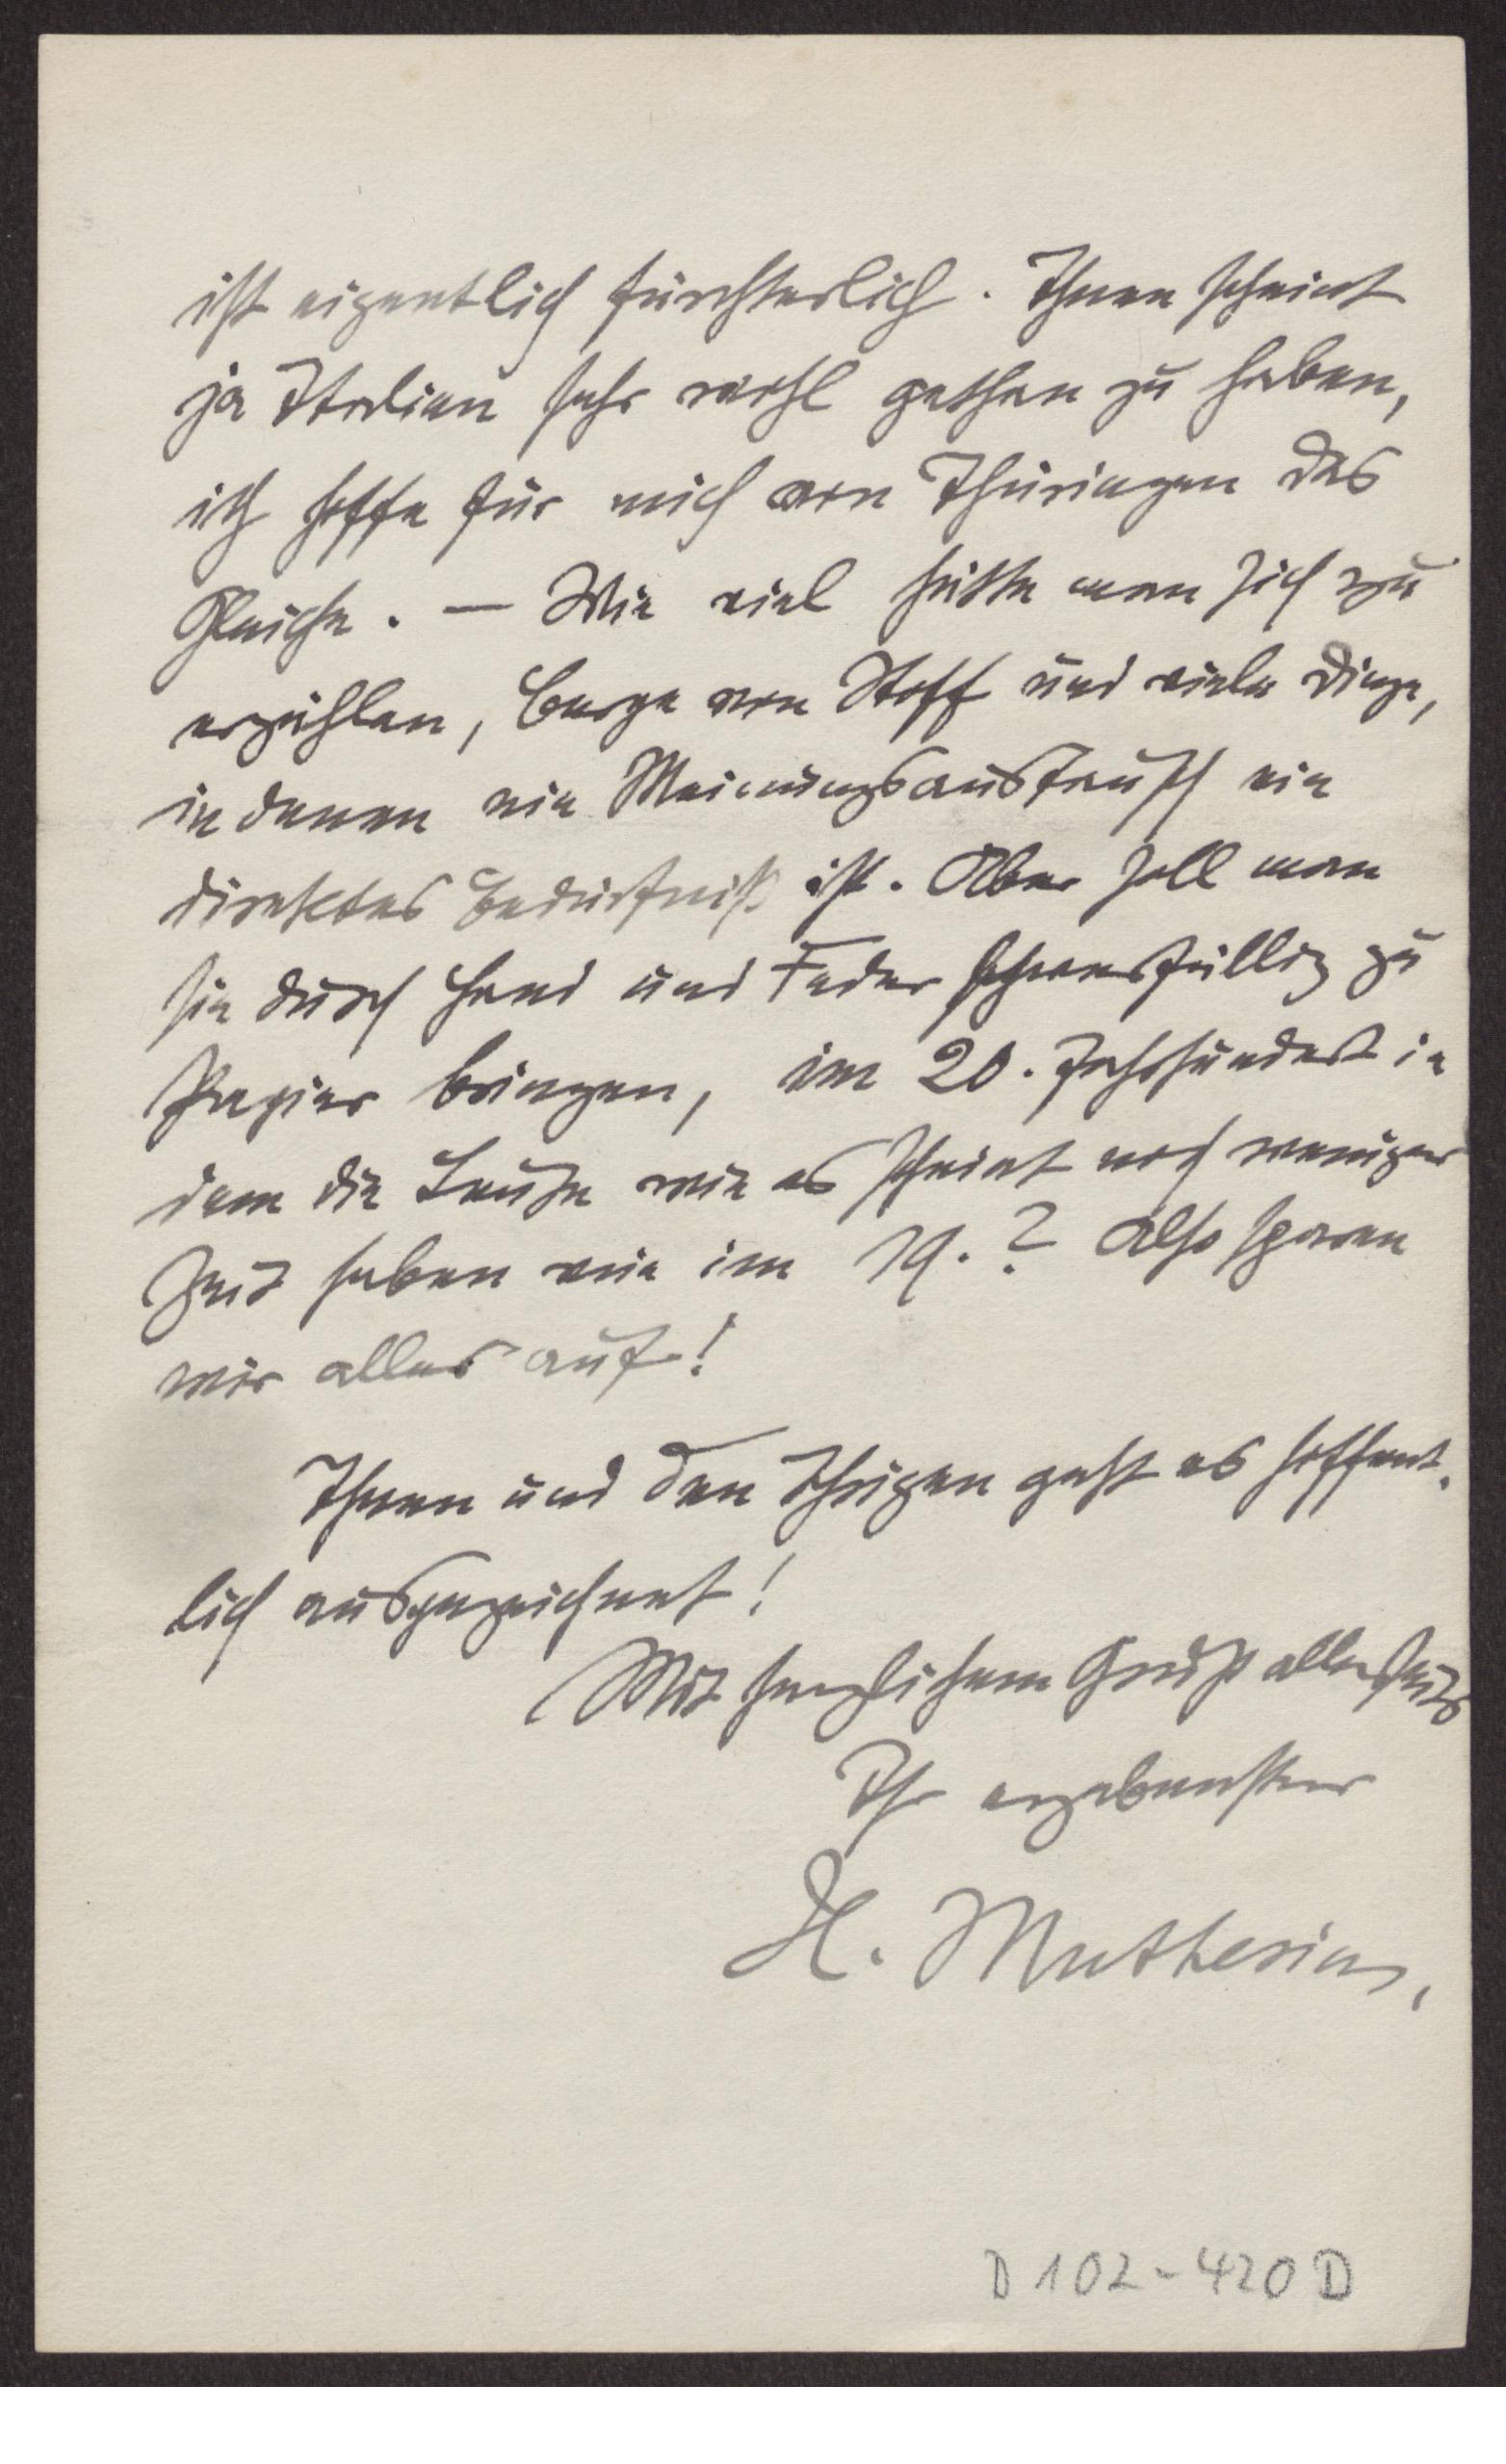 ist eigentlich fürchterlich. Ihnen scheint
ja Italien sehr wohl gethan zu haben,
ich hoffe für mich von Thüringen das
Gleiche. — Wie viel hätte man sich zu
erzählen, Berge von Stoff und viele Dinge,
in denen ein Meinungsaustausch ein
direktes Bedürfniß ist. Aber soll man
sie durch Hand und Feder schwerfällig zu
Papier bringen, im 20. Jahrhundert in
dem die Leute wie es scheint noch weniger
Zeit haben wie im 19.? Also sparen
wir alles auf!
Ihnen und den Ihrigen geht es hoffent-
lich ausgezeichnet!
Mit herzlichem Gruß allerseits
Ihr ergebenster
H. Muthesius,
D 102-420 D